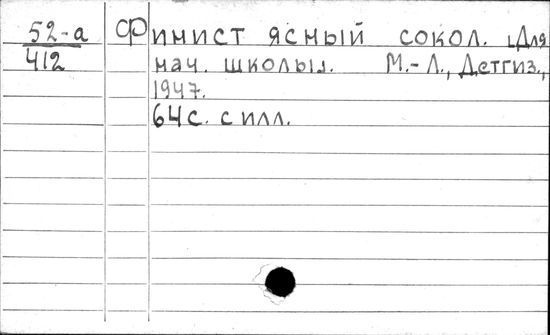 52-а
412
Финист ясный сокол. [Для
нач. школы]. М.-Л., Детгиз,
1947.
64 с. с илл.